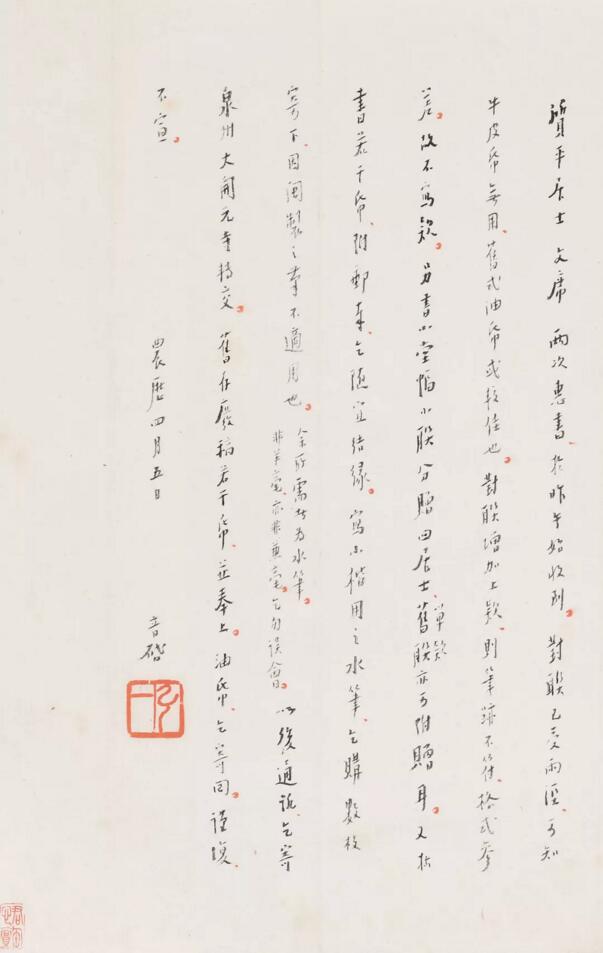 質平居士文席 兩次惠書、於昨午始收到。對聯已受雨溼、可知
牛皮帋無用、舊式油帋或較佳也。對聯增加上款、則筆跡不符、格式參
差。故不寫款。另書小堂幅小聯分贈四居士、單款舊聯亦可附贈耳。又拙
書若干帋、附郵奉、乞隨宜結緣。寫小楷用之水筆、乞購數枚
寄下、因閩製之筆不適用也。余所需者為水筆。非羊毫、亦非兼毫。乞勿誤會。以後通訊、乞寄
泉州大開元寺轉交。舊存廢稿若干帋、並奉上。油帋、乞寄回。謹復、
不宣。
農歷四月五日 音啓
弘一